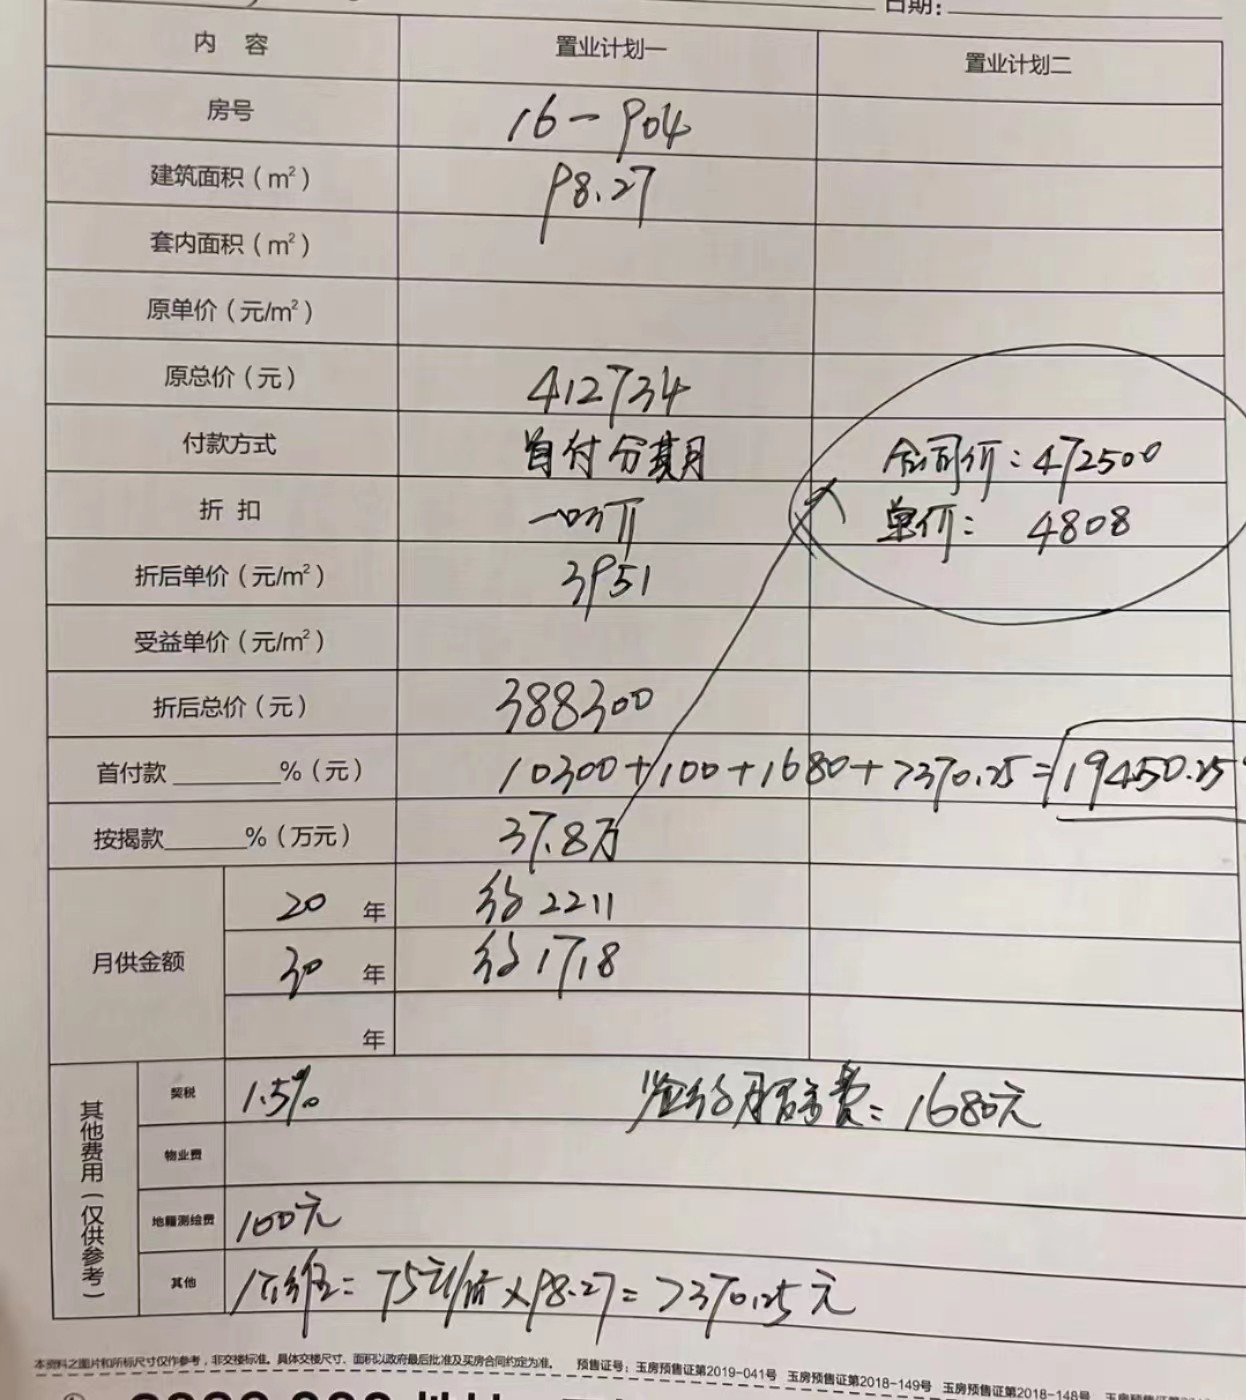 日期：
内 容 置业计划一 置业计划二
房号 16-904
建筑面积（m²） 98.27
套内面积（m²）
原单价（元/m²）
原总价（元） 412734
付款方式 首付分期 合同价：472500
折 扣 一口价 单价： 4808
折后单价（元/m²） 3951
受益单价（元/m²）
折后总价（元） 388300
首付款 %（元） 10300+100+1680+7370.25=19450.25
按揭款 %（万元） 37.8万
月供金额 20 年 约2211
30 年 约1718
年
其他费用（仅供参考）
契税 1.5% 签约服务费：1680元
物业费
地籍测绘费 100元
其他 公维：75元/㎡×98.27=7370.25元
本资料之图片和所标尺寸仅作参考，非交楼标准。具体交楼尺寸、面积以政府最后批准及买房合同约定为准。 预售证号：玉房预售证第2019-041号 玉房预售证第2018-149号 玉房预售证第2018-148号